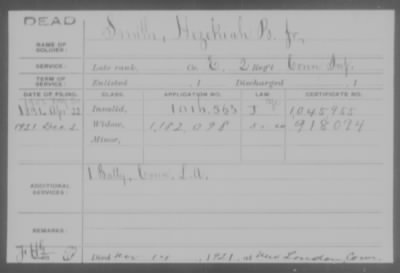 DEAD
NAME OF SOLDIER: Smith, Hezekiah B. Jr.
SERVICE: Late rank, Co. E, 2 Reg't Conn Inf.
TERM OF SERVICE: Enlisted , 1 Discharged , 1
DATE OF FILING. CLASS. APPLICATION NO. LAW. CERTIFICATE NO.
Apr 22 Invalid, 1016,563 J 1,045,955
1921 Dec. 2 Widow, 1,182,098 918074
Minor,
ADDITIONAL SERVICES: 1 Batty, Conn. L.A.
REMARKS:
Died Nov , 1921, at New London, Conn.